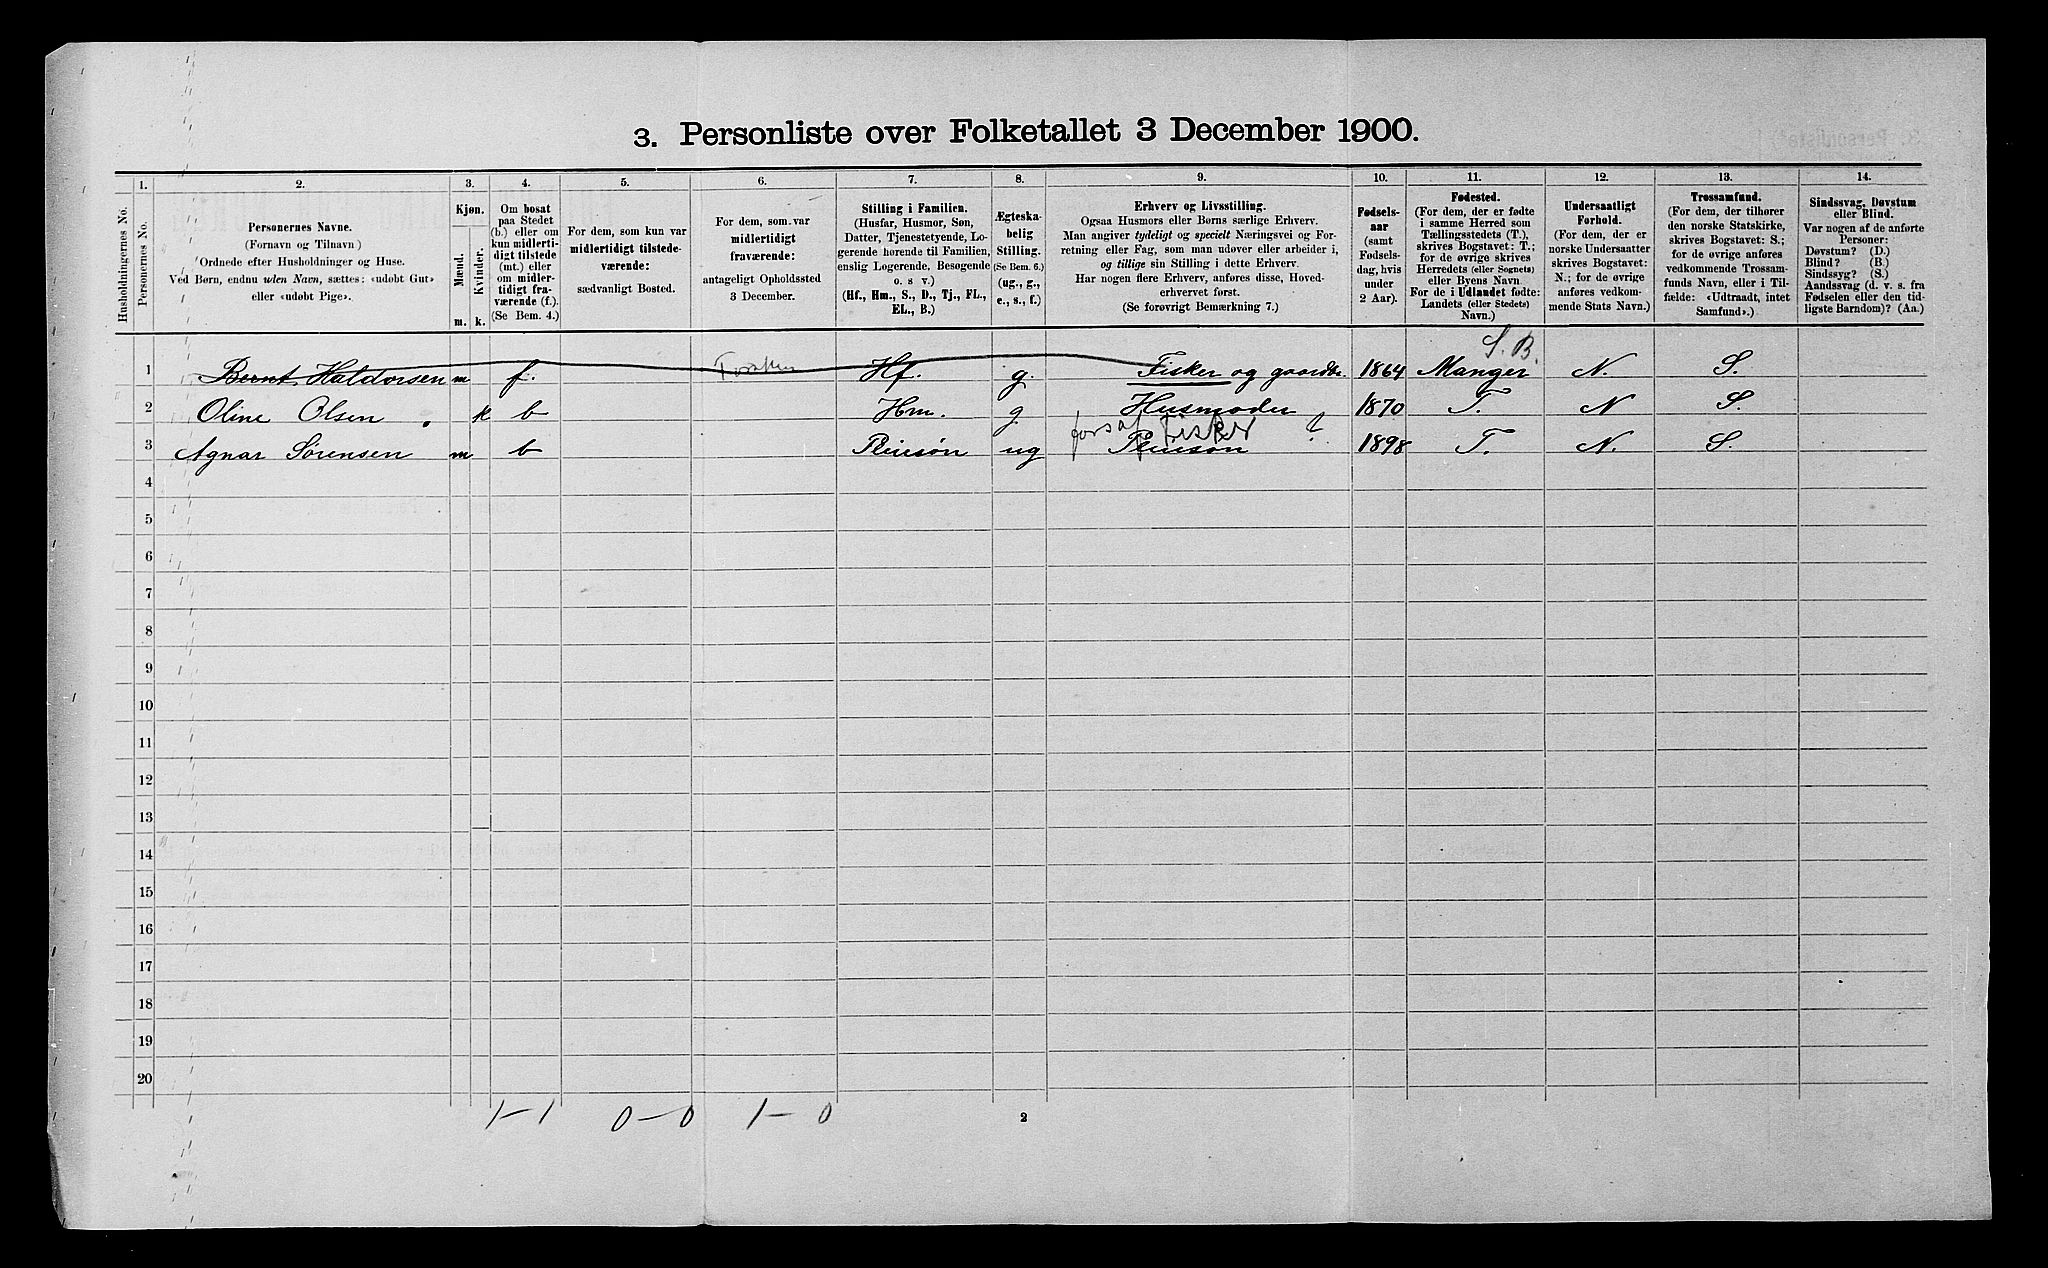 3. Personliste over Folketallet 3 December 1900.
1. 2. 3. 4. 5. 6. 7. 8. 9. 10. 11. 12. 13. 14.
Husholdningernes No.
Personernes No.
Personernes Navne.
(Fornavn og Tilnavn)
Ordnede efter Husholdninger og Huse.
Ved Børn, endnu uden Navn, sættes: «udøbt Gut»
eller «udøbt Pige».
Kjøn.
Mænd.
Kvinder.
m. k.
Om bosat
paa Stedet
(b.) eller om
kun midlerti-
digt tilstede
(mt.) eller
om midler-
tidigt fra-
værende (f.).
(Se Bem. 4.)
For dem, som kun var
midlertidigt tilstede-
værende:
sædvanligt Bosted.
For dem, som var
midlertidigt
fraværende:
antageligt Opholdssted
3 December.
Stilling i Familien.
(Husfar, Husmor, Søn,
Datter, Tjenestetyende, Lo-
gerende hørende til Familien,
enslig Logerende, Besøgende
o. s v.)
(Hf., Hm., S., D., Tj., FL.,
EL., B.)
Ægteska-
belig
Stilling.
(Se Bem. 6.)
(ug., g.,
e., s., f.)
Erhverv og Livsstilling.
Ogsaa Husmors eller Børns særlige Erhverv.
Man angiver tydeligt og specielt Næringsvei og For-
retning eller Fag, som man udøver eller arbeider i,
og tillige sin Stilling i dette Erhverv.
Har nogen flere Erhverv, anføres disse, Hoved-
erhvervet først.
(Se forøvrigt Bemærkning 7.)
Fødsels-
aar
(samt
Fødsels-
dag, hvis
under
2 Aar).
Fødested.
(For dem, der er fødte
i samme Herred som
Tællingsstedets (T.),
skrives Bogstavet: T.;
for de øvrige skrives
Herredets (eller Sognets)
eller Byens Navn.
For de i Udlandet fødte:
Landets (eller Stedets)
Navn.)
Undersaatligt
Forhold.
(For dem, der er
norske Undersaatter
skrives Bogstavet:
N.; for de øvrige
anføres vedkom-
mende Stats Navn.)
Trossamfund.
(For dem, der tilhører
den norske Statskirke,
skrives Bogstavet: S.;
for de øvrige anføres
vedkommende Trossam-
funds Navn, eller i Til-
fælde: «Udtraadt, intet
Samfund».)
Sindssvag, Døvstum
eller Blind.
Var nogen af de anførte
Personer:
Døvstum? (D.)
Blind? (B.)
Sindssyg? (S.)
Aandssvag (d. v. s. fra
Fødselen eller den tid-
ligste Barndom)? (Aa.)
S. B.
1 Bernt Haldorsen m f. Hf. g. Fisker og gaardbr. 1864 Manger N. S.
2 Oline Olsen k b Hm. g Husmoder 1870 T. N S.
fors af Fisker ?
3 Agnar Sørensen m b Pleiesøn ug Pleiesøn 1898 T. N. S.
4
5
6
7
8
9
10
11
12
13
14
15
16
17
18
19
20
1–1 0–0 1–0 2